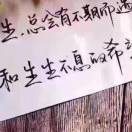 生，总会有不期而遇
和生生不息的希